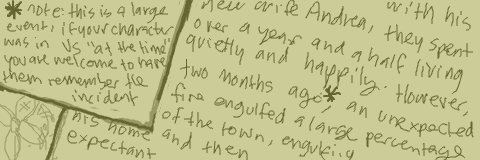 * note: this is a large
event, if your character
was in VS "at the time
you are welcome to have
them remember the
incident
new wife Andrea, with his
over a year and a half living
quietly and happily. However,
two months ago*, an unexpected
fire engulfed a large percentage
of the town, engulfing
and then
his home
expectant